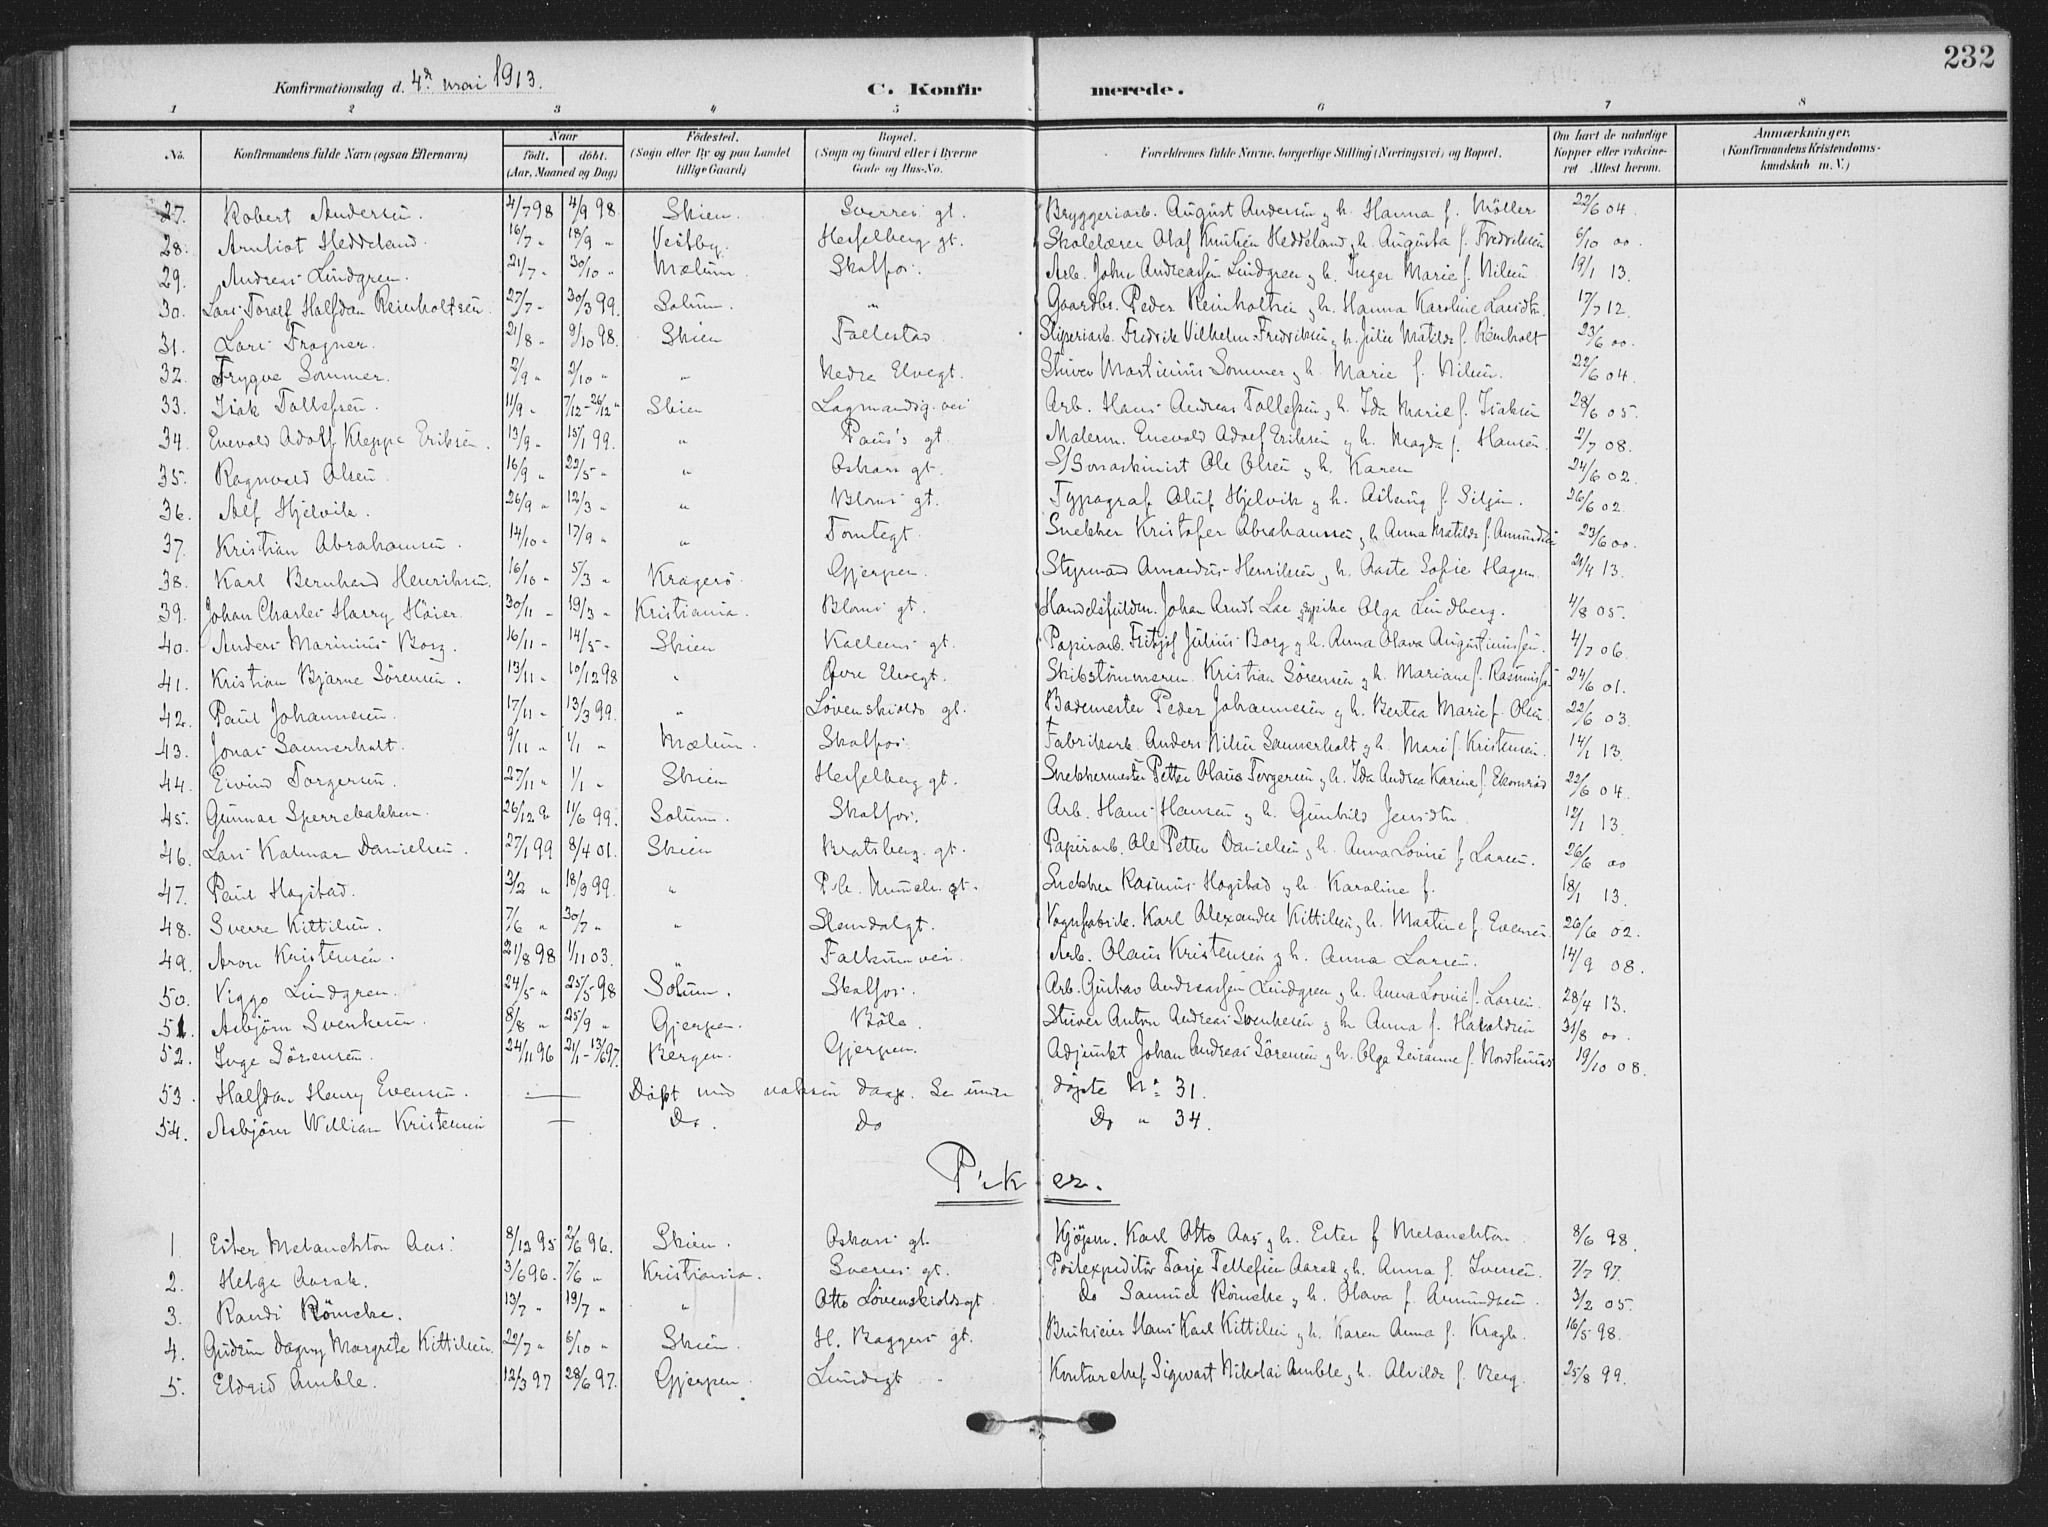 232
Konfirmationsdag d. 4d mai 1913. C. Konfirmerede.
1 2 3 4 5 6 7 8
No. Konfirmandens fulde Navn (ogsaa Efternavn) Naar født. døbt. (Aar, Maaned og Dag) Fødested. (Sogn eller By og paa Landet tillige Gaard) Bopæl. (Sogn og Gaard eller i Byerne Gade og Hus-No. Forældrenes fulde Navne, borgerlige Stilling (Næringsvei) og Bopæl. Om havt de naturlige Kopper eller vakcineret Attest herom. Anmærkninger. (Konfirmandens Kristendomskundskab m. V.)
27. Robert Andersen. 4/7 98 4/9 98. Skien. Sverres gt. Bryggeriarb. August Andersen g h. Hanna f. Möller 22/6 04.
28. Arnliot Heddeland. 16/7 " 18/9 " Vestby. Hesselberg gt. Skolelærer Olaf Knutsen Heddeland g h. Augusta f. Fredriksen 6/10 00.
29. Andreas Lindgren. 21/7 " 30/10 " Mælum. Skotfos. Arb. John Andreassen Lindgren g h. Inger Marie f. Nilsen 19/1 13.
30. Lars Toralf Halfdan Reinholtsen. 27/7 " 30/3 99. Solum. " Gaardbr. Peder Reinholtsen g h. Hanna Karoline Larsdtr. 17/7 12.
31. Lars Frogner. 21/8 " 9/10 98. Skien Follestad Sliperiarb. Fredrik Vilhelm Fredriksen g h. Julie Matilde f. Reinholt 23/6 00.
32. Trygve Sommer. 2/9 " 2/10 " " Nedre Elvegt. Skriver Martinius Sommer g h. Marie f. Nilsen. 22/6 04.
33. Isak Tollefsen. 11/9 " 7/12 - 26/12 " Skien Lagmandsg. vei Arb. Hans Andreas Tollefsen g h. Ida Marie f. Isaksen 28/6 05.
34. Enevold Adolf Kleppe Eriksen. 13/9 " 15/1 99. " Paus's gt. Malerm. Enevold Adolf Eriksen g h. Magda f. Hansen. 2/7 08.
35. Ragnvald Olsen. 16/9 " 22/5 " " Oskars gt. Ole Olsen g h. Karen 24/6 02.
36. Alf Hjelvik. 26/9 " 12/3 " " Bloms gt. Typograf Oluf Hjelvik g h. Asborg f. Siljan. 26/6 02.
37. Kristian Abrahamsen. 14/10 " 17/9 " " Tomtegt. Snekker Kristofer Abrahamsen g h. Anna Matilde f. Amundsen 23/6 00.
38. Karl Bernhard Henriksen. 16/10 " 5/3 " Kragerö. Gjerpen. Styrmand Amandus Henriksen g h. Aaste Sofie Hagen. 21/4 13.
39. Johan Charles Harry Höier. 30/11 " 19/3 " Kristiania. Bloms gt. Johan Arndt Lae pike Olga Lindberg. 4/8 05.
40. Anders Marinius Borg. 16/11 " 14/5 " Skien Kallens gt. Papirarb. Fritjof Julius Borg g h. Anna Olava Augustinussen. 4/7 06.
41. Kristian Bjarne Sörensen. 13/11 " 10/12 98 " Övre Elvegt. Skibstömmerm. Kristian Sörensen g h. Mariane f. Rasmussen 24/6 01.
42. Paul Johannesen. 17/11 " 13/3 99. " Lövenskiolds gt. Bademester Peder Johannesen g h. Bertea Marie f. Olsen. 22/6 03.
43. Jonas Sannerholt. 9/11 " 1/1 " Mælum. Skotfos. Fabrikarb. Anders Nilsen Sannerholt g h. Mari f. Kristensen. 14/1 13.
44. Eivind Torgersen. 27/11 " 1/1 " Skien Hesselberg gt. Snekkermester Petter Olaus Torgersen g h. Ida Andrea Karine f. Ekornrød 22/6 04.
45. Gunnar Sperrebakken. 26/12 " 11/6 99. Solum. Skotfos. Arb. Hans Hansen g h. Gunhild Jensdtr. 12/1 13.
46. Lars Kalmar Danielsen. 27/1 99 8/4 01. Skien Bratsberg. gt. Papirarb. Ole Petter Danielsen g h. Anna Lovise f. Larsen. 26/6 00
47. Paul Hogstad. 3/2 " 18/3 99. " P. A. Munchs gt. Snekker Rasmus Hogstad g h. Karoline f. 18/1 13.
48. Sverre Kittilsen. 7/6 " 30/7 " " Slemdalgt. Vognfabrik. Karl Alexander Kittilsen g h. Martine f. Evensen. 26/6 02.
49. Aron Kristensen. 21/8 98 1/11 03. " Falkumvei. Arb. Olaus Kristensen g h. Anna Larsen. 14/9 08.
50. Viggo Lindgren. 24/5 " 25/5 98 Solum. Skotfos. Arb. Gustav Andreassen Lindgren g h. Anna Lovise f. Larsen. 28/4 13.
51. Asbjörn Svenksen. 8/8 " 25/9 " Gjerpen. Böle. Skriver Anton Andreas Svenksen g h. Anna f. Haraldsen 31/8 00.
52. Inge Sörensen. 24/11 96 21/1 - 13/6 97. Bergen. Gjerpen. Adjunkt Johan Andreas Sörensen g h. Olga Susanne f. Nordhuus 19/10 08.
53. Halfdan Henry Evensen. — Döpt med voksen daap. Se under döpte No 31.
54. Asbjörn William Kristensen — Do. Do Do " 34.
Piker.
1. Ester Melanchton Aas. 8/12 95 2/6 96. Skien. Oskars gt. Kjöpm. Karl Otto Aas g h. Ester f Melanchton 8/6 98.
2. Helga Aarak. 3/6 96. 7/6 " Kristiania. Sverres gt. Postexpeditör Tarje Tellefsen Aarak g h. Anna f. Iversen. 7/7 97.
3. Randi Römcke. 13/7 " 19/7 " " Otto Lövenskioldsgt Do Samuel Römcke g h. Olava f. Amundsen. 3/2 05.
4. Gudrun Dagny Margrete Kittilsen. 22/7 " 6/10 " Skien. H. Baggers gt. Brukseier Hans Karl Kittilsen g h. Karen Anna f. Kragh. 16/5 98.
5. Eldrid Amble. 12/3 97 28/6 97. Gjerpen. Lundegt Kontorchef Sigwart Nikolai Amble g h. Alvilde f. Berg. 25/8 99.